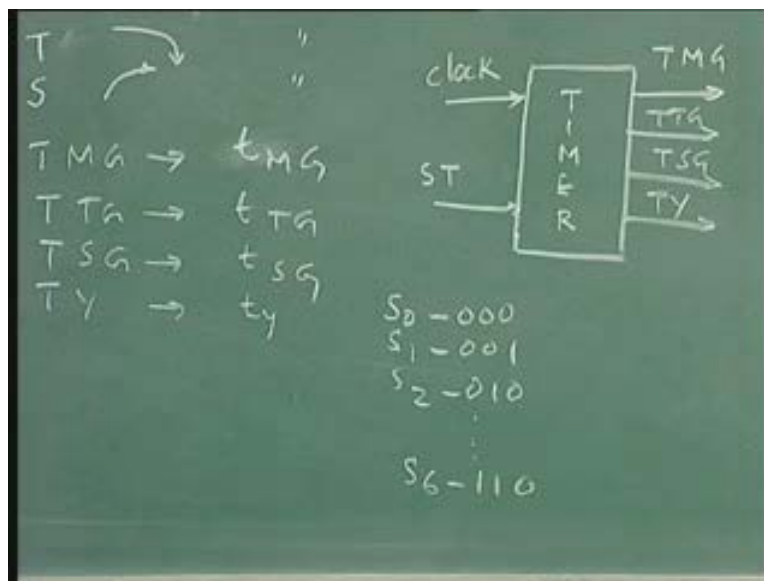 T "
S "
TMG → tMG
TTG → tTG
TSG → tSG
TY → ty
clock
ST
TIMER
TMG
TTG
TSG
TY
S0 - 000
S1 - 001
S2 - 010
⋮
S6 - 110